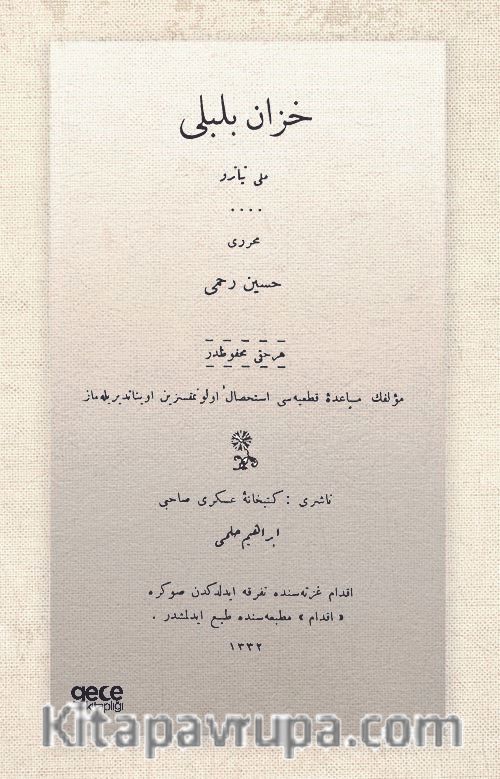 خزان بلبلی
ملی تیاترو
....
محرری
حسین رحمی
هر حقی محفوظدر
مؤلفك مساعدهٔ قطعیه‌سی استحصال اولونمقسزین اویناتدیریله‌ماز
ناشری : كتبخانهٔ عسكری صاحبی
ابراهیم حلمی
اقدام غزته‌سنده تفرقه ایدلدكدن صوكره
« اقدام » مطبعه‌سنده طبع ایدلمشدر .
١٣٣٢
gece
kitaplığı
Kitapavrupa.com